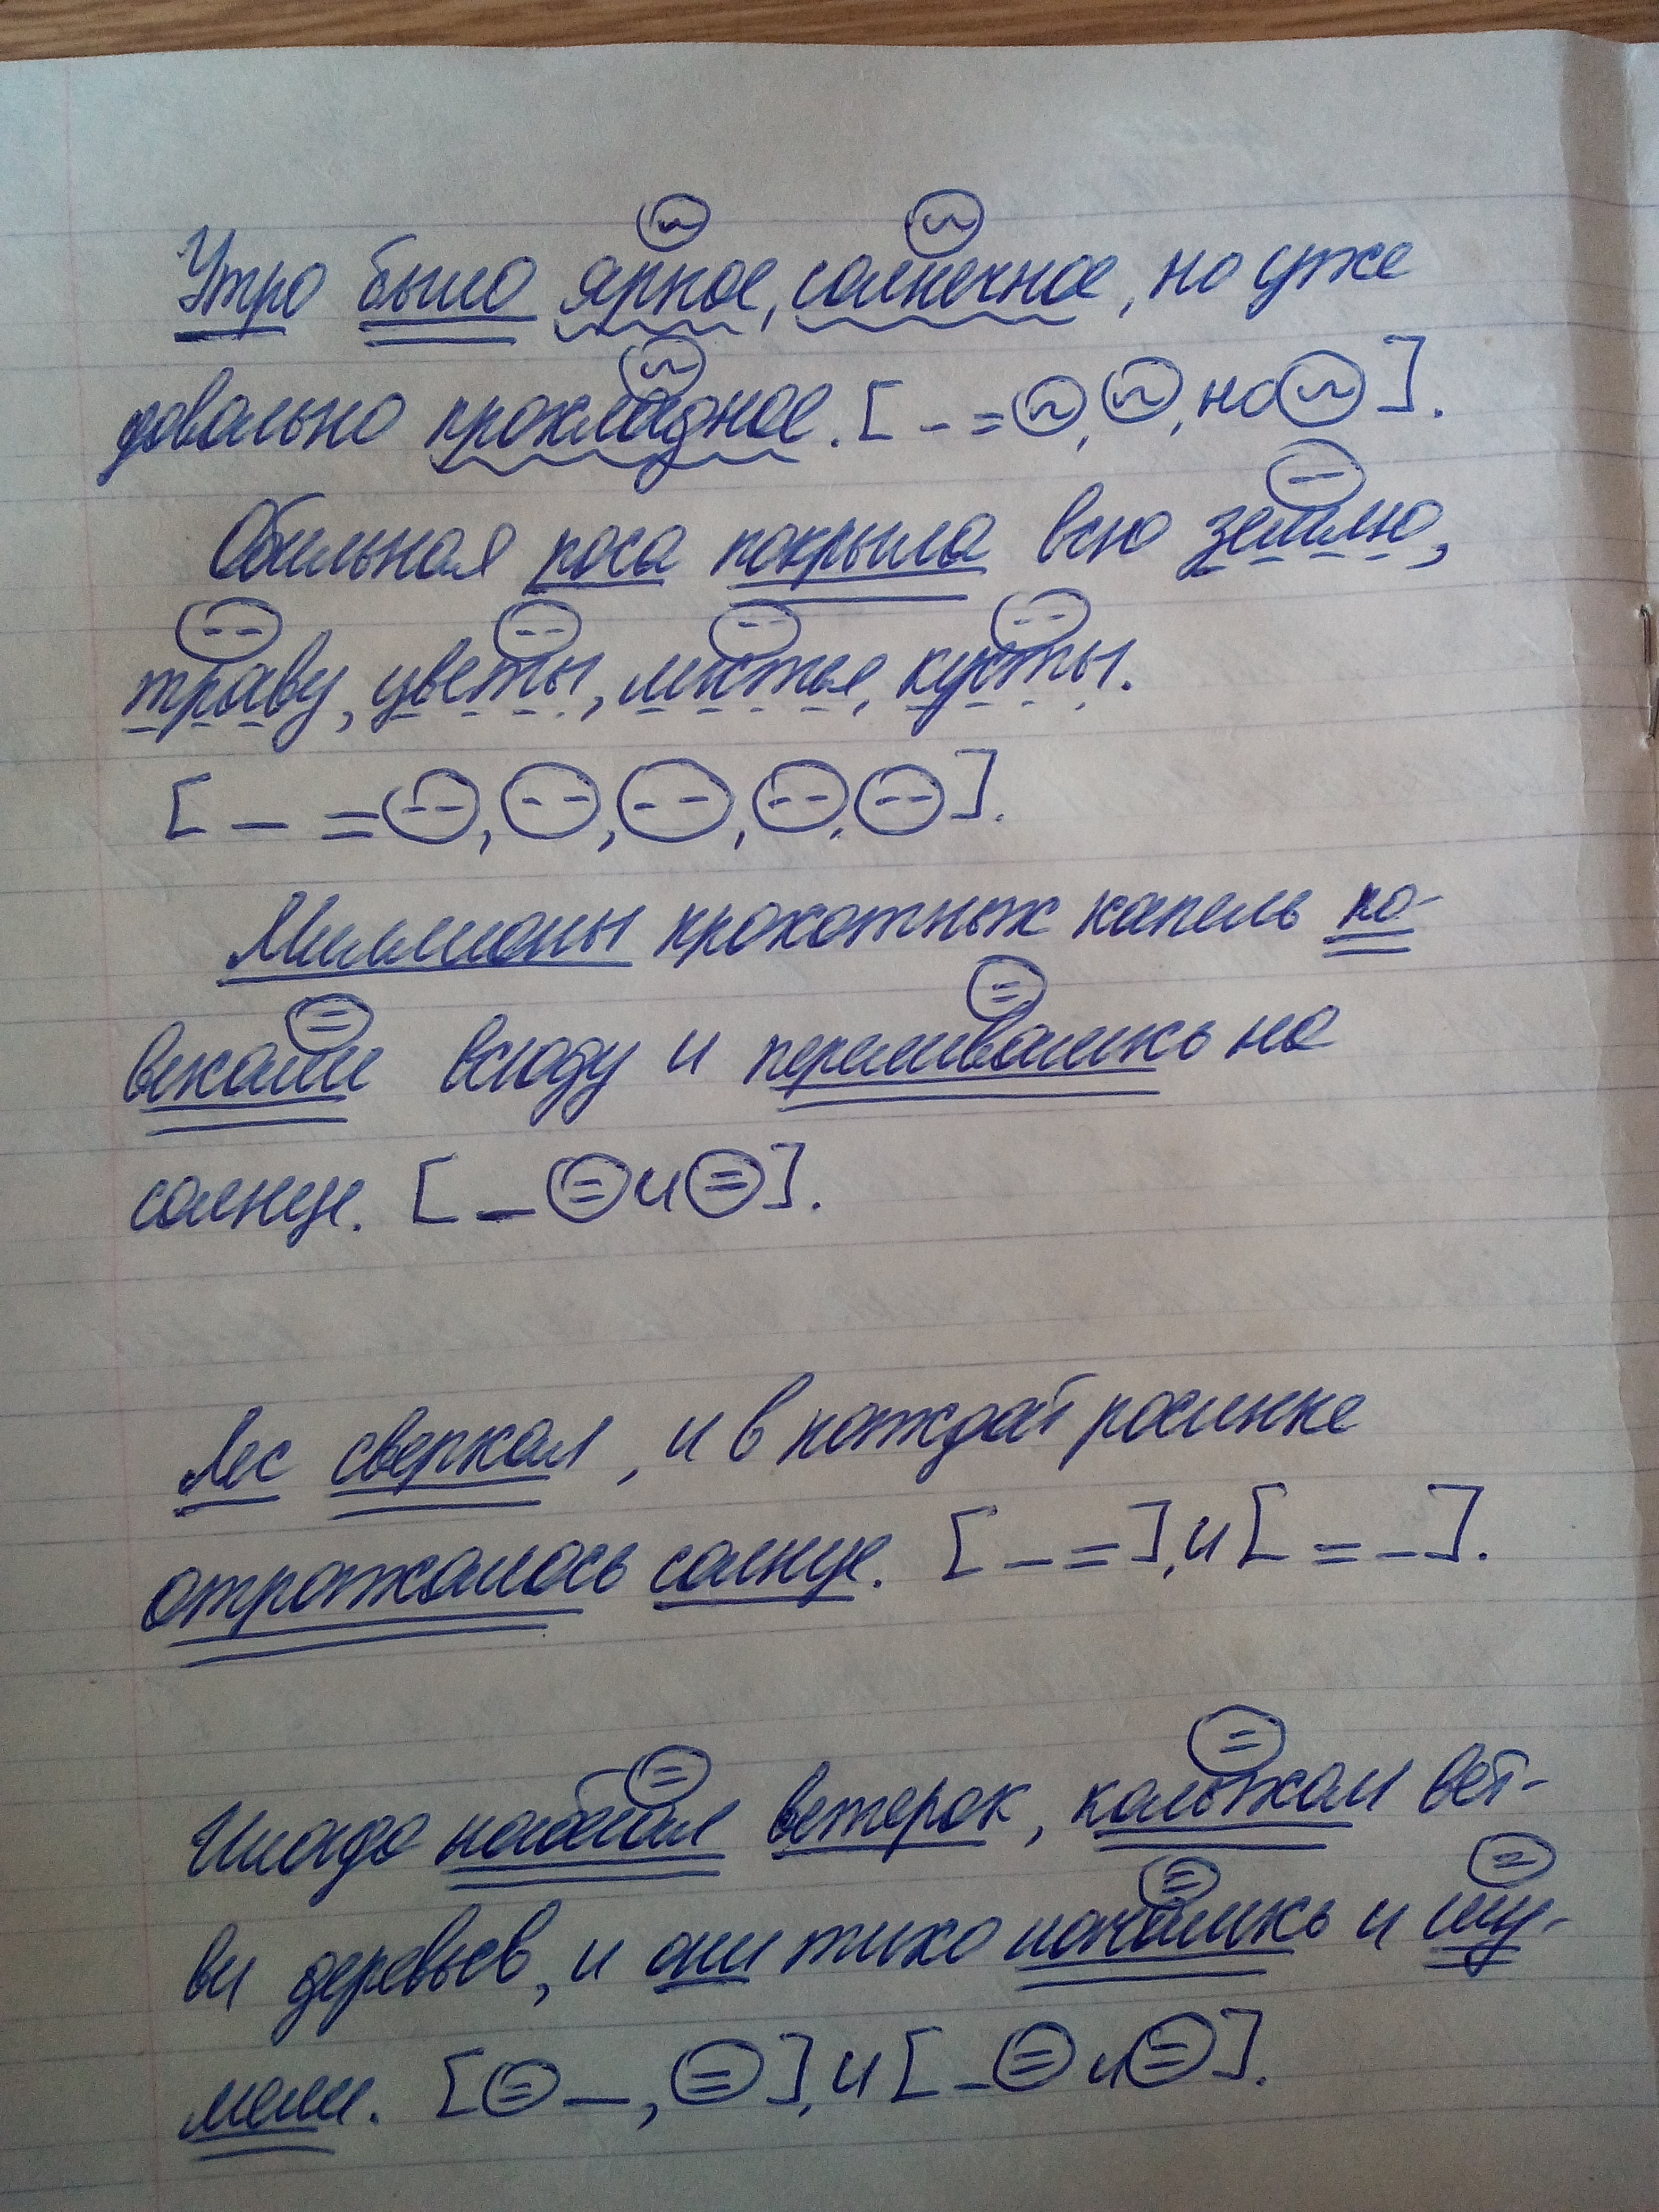 Утро было яркое, солнечное, но уже
довольно прохладное. [ - = ○, ○, но ○ ].
Обильная роса покрыла всю землю,
траву, цветы, листья, кусты.
[ — = ○, ○, ○, ○, ○ ].
Миллионы крохотных капель по-
висали всюду и переливались на
солнце. [ — ○ и ○ ].
Лес сверкал, и в каждой росинке
отражалось солнце. [ — = ], и [ = — ].
Иногда набегал ветерок, колыхал вет-
ви деревьев, и они тихо качались и шу-
мели. [ ○ — , ○ ], и [ - ○ и ○ ].